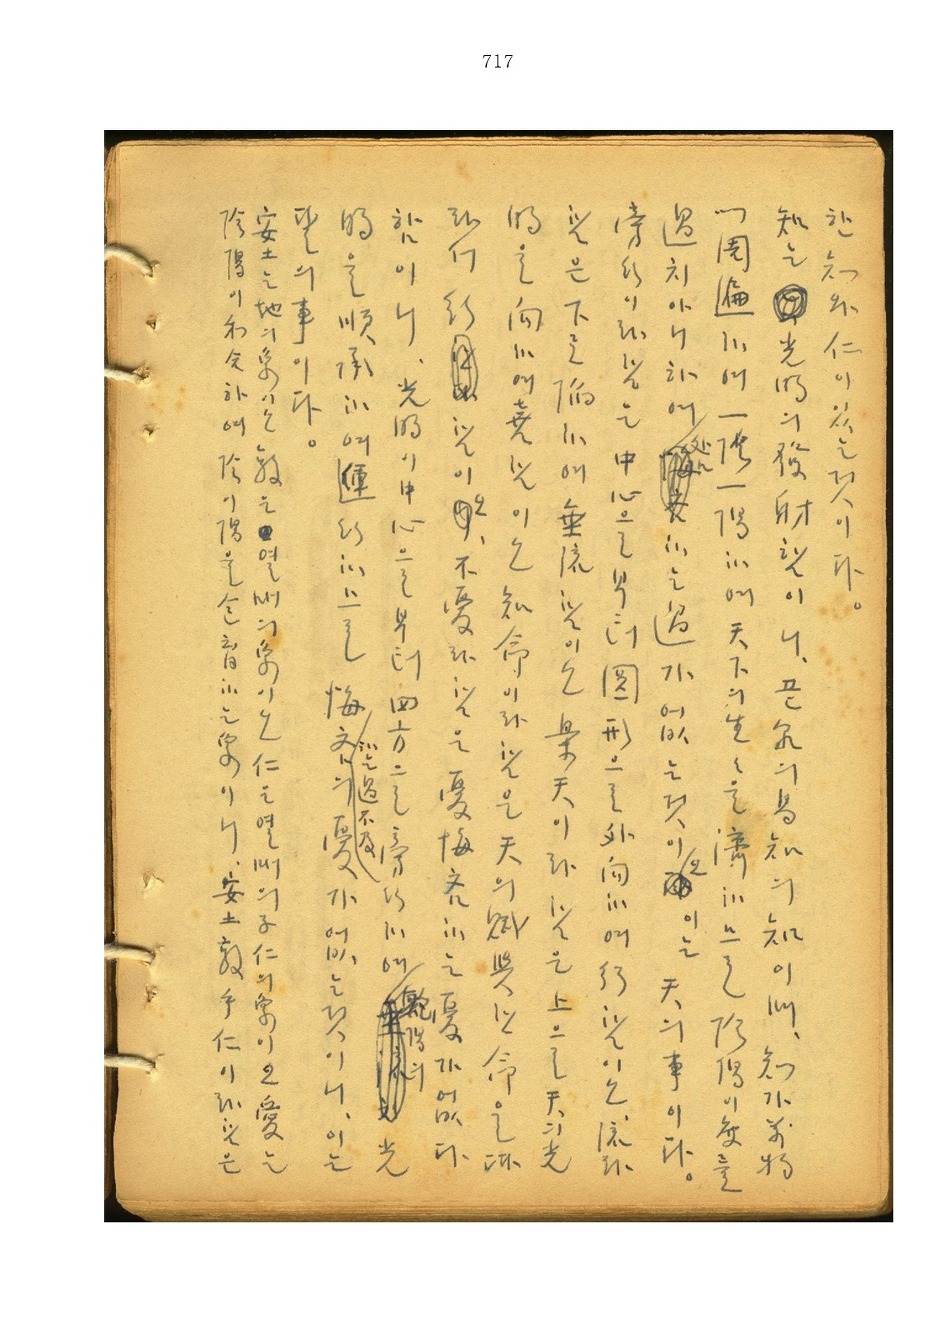 717
한 知와 仁이 있는것이다。
知는 光明의 發射함이니、곧 乾의 易知의 知이며、知가 萬物
에 周遍하여 一陰一陽하여 天下의 生生을 濟하므로 陰陽이 度를
過치 아니하여 處하는 過가 없는것이오 이는 天의 事이다。
旁行이라 함은 中心으로부터 圓形으로 外向하여 行함이오、流라
함은 下로 陷하여 垂流함이오 樂天이라 함은 上으로 天의 光
明을 向하여 함이오 知命이라 함은 天의 賦與한 命을 따
라서 行함이오、不憂라 함은 憂悔吝하는 憂가 없다
함이니、光明이 中心으로부터 四方으로 旁行하여 乾陽의 光
明을 順承하여 運行하므로 悔吝하는 過不及의 憂가 없는것이니、이는
달의 事이다。
安土는 地의 象이오 敦은 열매의 象이오 仁은 열매의 子仁의 象이오 愛는
陰陽이 和合하여 陰이 陽을 含育하는 象이니、安土敦乎仁이라 함은